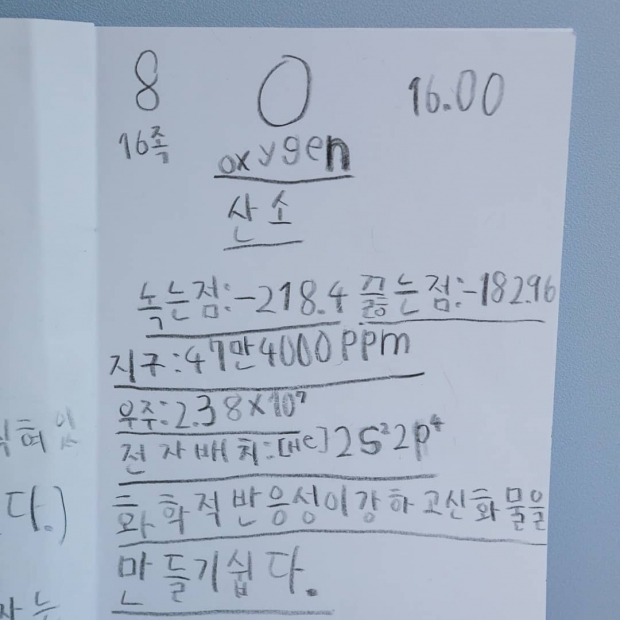 8 O 16.00
16족
oxygen
산소
녹는점:-218.4 끓는점:-182.96
지구:47만4000ppm
우주:2.38×10⁷
전자배치:[He]2s²2p⁴
화학적반응성이강하고신화물을
만들기쉽다.
다.)